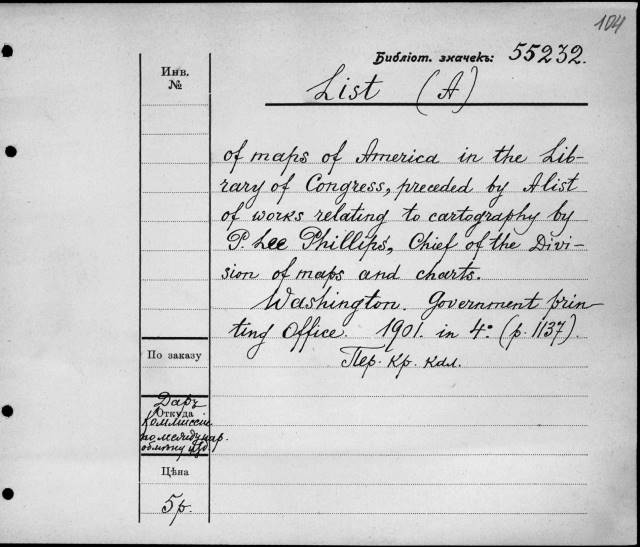 104
Библіот. значекъ: 55232.
Инв.
№
List (A)
of maps of America in the Lib-
rary of Congress, preceded by A list
of works relating to cartography by
P. Lee Phillips, Chief of the Divi-
sion of maps and charts.
Washington. Government prin-
ting Office. 1901. in 4° (p. 1137).
Пер. кр. кдл.
По заказу
Даръ
Откуда
Коммиссіи
по междунар.
обмѣну изд
Цѣна
5 р.